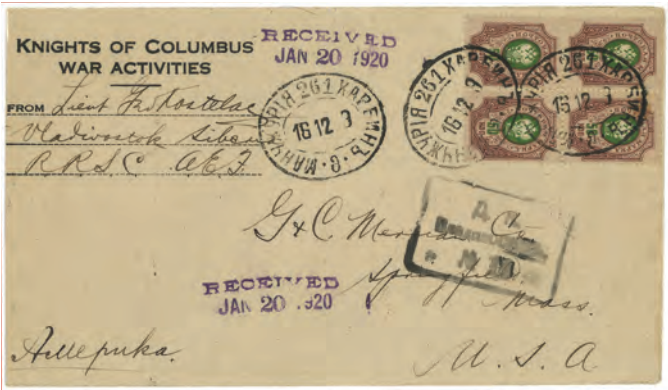 KNIGHTS OF COLUMBUS
WAR ACTIVITIES
FROM Lieut F. Kostelac
Vladivostok Siberia
R.R.S.C. A.E.F.
RECEIVED
JAN 20 1920
МАНЧЖУРІЯ 261 ХАРБИНЪ
16 12 9
МАНЧЖУРІЯ 261 ХАРБИНЪ
16 12 9
261 ХАРБИН
16 12 9
G & C Merriam Co
Springfield.
Mass.
U. S. A
Д. Ц.
RECEIVED
JAN 20 1920
Америка.